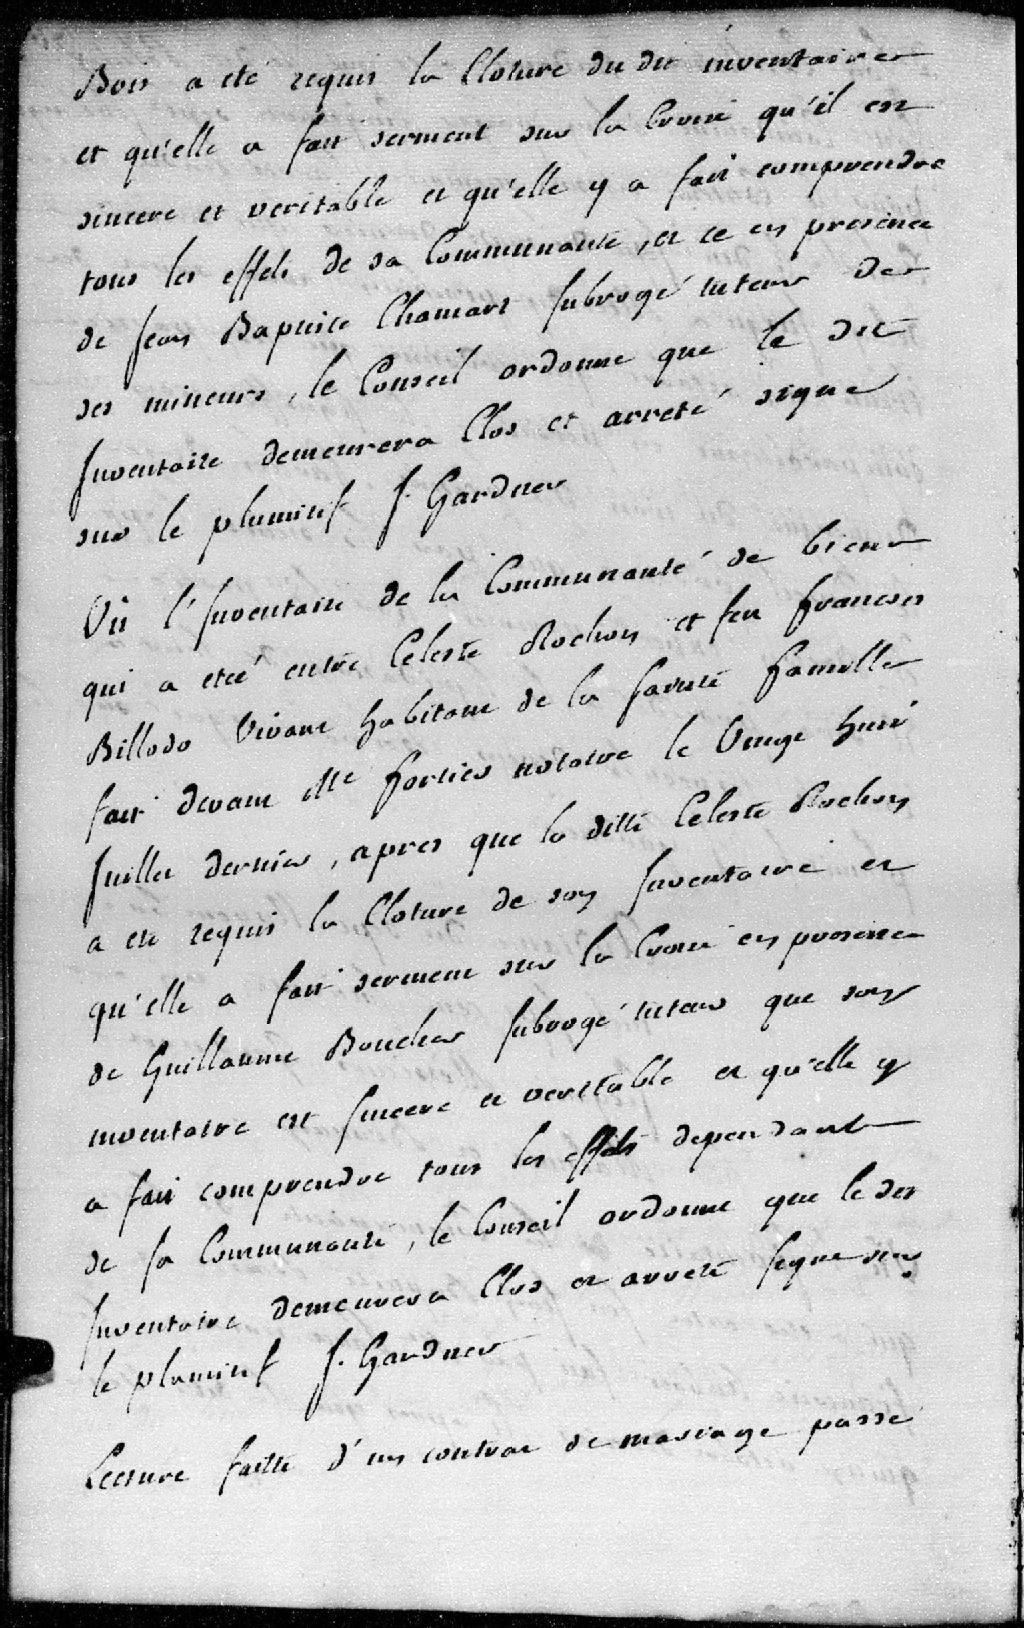 Bois a eté requis la Cloture du dit inventaire
et qu'elle a fait serment sur la Croix qu'il est
sincere et veritable et qu'elle y a fait comprendre
tous les effets de sa Communauté, et ce en presence
de Jean Baptiste Chamart subrogé tuteur de
ses mineurs, le Conseil ordonne que le dit
Inventaire demeurera Clos et arreté signé
sur le plumitif J. Gardner
Vû l'Inventaire de la Communauté de biens
qui a eteé entre Celeste Rochon et feu francois
Billodo Vivant habitant de la sainte famille
fait devant Me fortier notaire le Vingt huit
Juillet dernier, apres que la ditte Celeste Rochon
a ete requis la Cloture de son Inventaire et
qu'elle a fait serment sur la Croix en presence
de Guillaume Boucher subrogé tuteur que son
inventaire est sincere et veritable et qu'elle y
a fait comprendre tous les effets dependant
de sa Communauté, le Conseil ordonne que le dit
Inventaire demeurera Clos et arreté signé sur
le plumitif J. Gardner
Lecture faitte d'un contrat de mariage passé